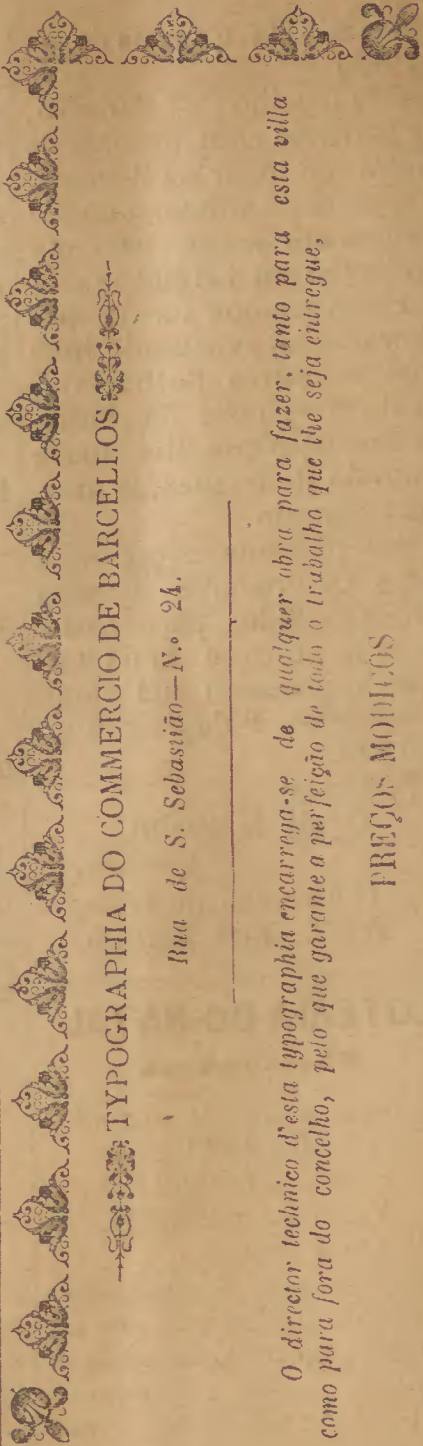 TYPOGRAPHIA DO COMMERCIO DE BARCELLOS
Rua de S. Sebastião—N.º 24.
O director technico d'esta typographia encarrega-se de qualquer obra para fazer, tanto para esta villa
como para fora do concelho, pelo que garante a perfeição de todo o trabalho que lhe seja entregue,
PREÇOS MODICOS